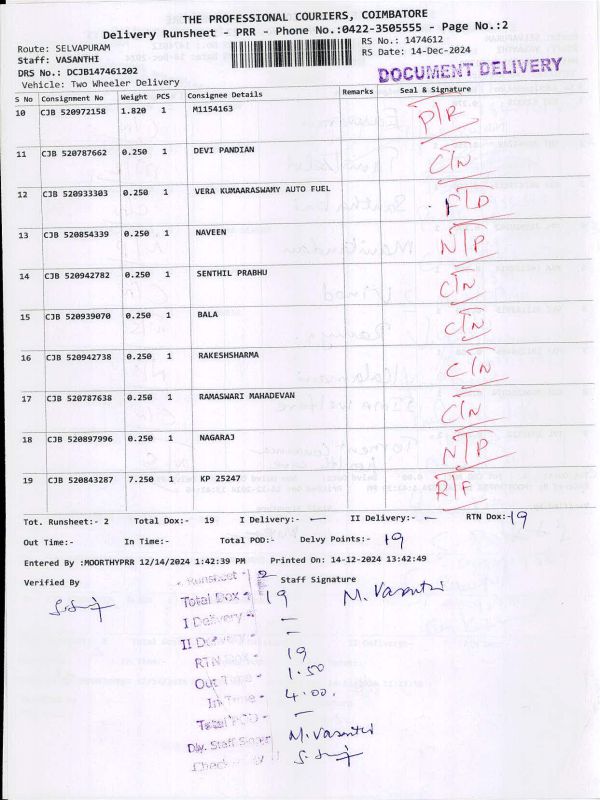 THE PROFESSIONAL COURIERS, COIMBATORE
Delivery Runsheet - PRR - Phone No.:0422-3505555 - Page No.:2
Route: SELVAPURAM RS No.: 1474612
Staff: VASANTHI RS Date: 14-Dec-2024
DRS No.: DCJB147461202 DOCUMENT DELIVERY
Vehicle: Two Wheeler Delivery
S No Consignment No Weight PCS Consignee Details Remarks Seal & Signature
10 CJB 520972158 1.820 1 M1154163 P/R
11 CJB 520787662 0.250 1 DEVI PANDIAN C/N
12 CJB 520933303 0.250 1 VERA KUMAARASWAMY AUTO FUEL F/D
13 CJB 520854339 0.250 1 NAVEEN N/P
14 CJB 520942782 0.250 1 SENTHIL PRABHU C/N
15 CJB 520939070 0.250 1 BALA C/N
16 CJB 520942738 0.250 1 RAKESHSHARMA C/N
17 CJB 520787638 0.250 1 RAMASWARI MAHADEVAN C/N
18 CJB 520897996 0.250 1 NAGARAJ N/P
19 CJB 520843287 7.250 1 KP 25247 R/F
Tot. Runsheet:- 2 Total Dox:- 19 I Delivery:- — II Delivery:- — RTN Dox:- 19
Out Time:- In Time:- Total POD:- Delvy Points:- 19
Entered By :MOORTHYPRR 12/14/2024 1:42:39 PM Printed On: 14-12-2024 13:42:49
Verified By Staff Signature
Runsheet - 2
Total Dox - 19 M. Vasanthi
I Delivery - —
II Delivery - —
RTN Dox - 19
Out Time - 1.50
In Time - 4.00.
Total POD - —
Dly. Staff M. Vasanthi